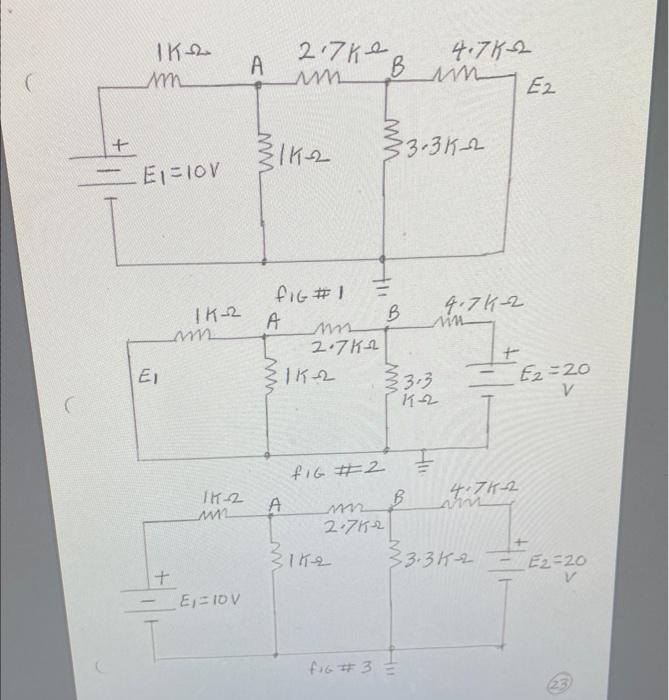 1KΩ A 2.7KΩ B 4.7KΩ
E2
+
1KΩ 3.3KΩ
E1=10V
fIG #1
1KΩ A B 4.7KΩ
2.7KΩ
+
E1 1KΩ 3.3 KΩ E2=20 V
fIG #2
1KΩ A B 4.7KΩ
2.7KΩ
+
1KΩ 3.3KΩ E2=20 V
+
E1=10V
fIG #3
23